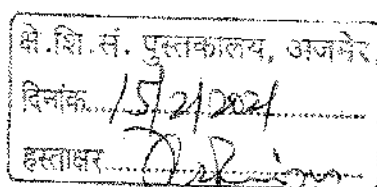 क्षे.शि.सं. पुस्तकालय, अजमेर
दिनांक.....15/2/2021..........
हस्ताक्षर..........